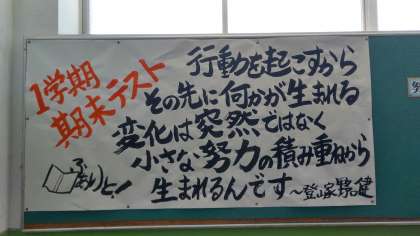 1学期
期末テスト
行動を起こすから
その先に何かが生まれる
変化は突然ではなく
小さな努力の積み重ねから
生まれるんです
〜登山家 野口健
ふぁいと!